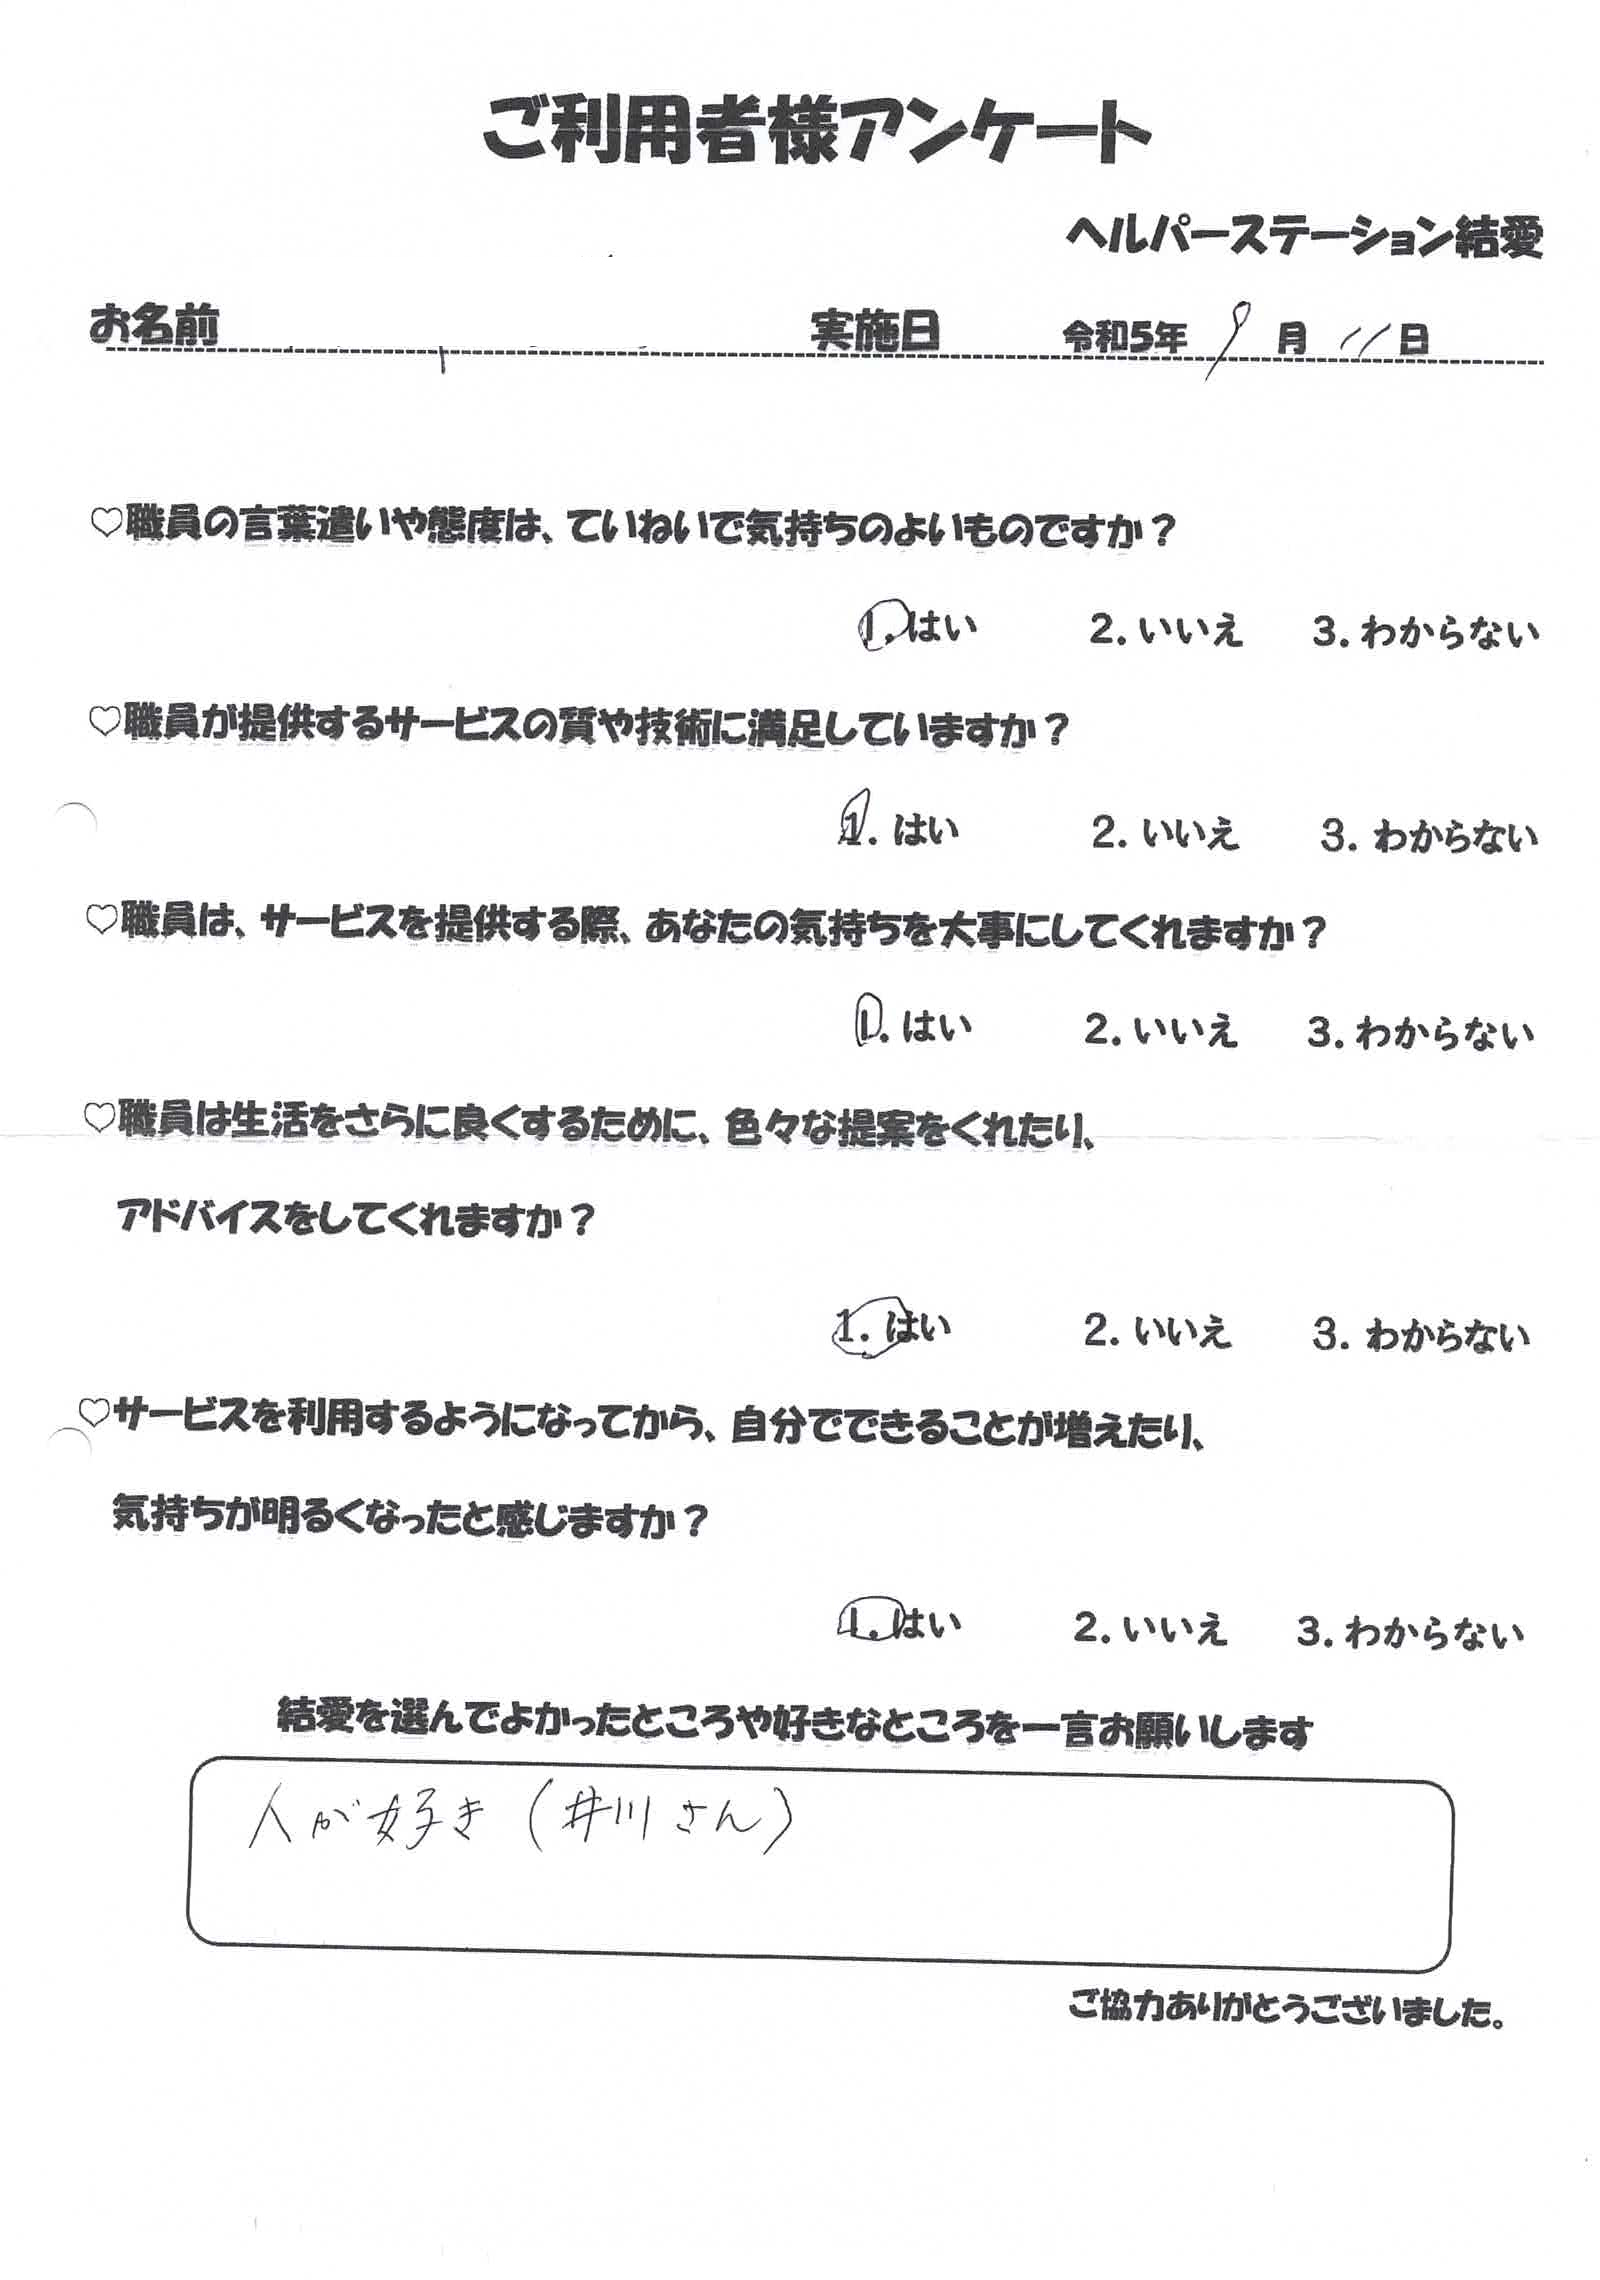 ご利用者様アンケート
ヘルパーステーション結愛
お名前 実施日 令和5年 9月 11日
♡職員の言葉遣いや態度は、ていねいで気持ちのよいものですか？
1.はい 2.いいえ 3.わからない
♡職員が提供するサービスの質や技術に満足していますか？
1.はい 2.いいえ 3.わからない
♡職員は、サービスを提供する際、あなたの気持ちを大事にしてくれますか？
1.はい 2.いいえ 3.わからない
♡職員は生活をさらに良くするために、色々な提案をくれたり、
アドバイスをしてくれますか？
1.はい 2.いいえ 3.わからない
♡サービスを利用するようになってから、自分でできることが増えたり、
気持ちが明るくなったと感じますか？
1.はい 2.いいえ 3.わからない
結愛を選んでよかったところや好きなところを一言お願いします
人が好き（井川さん）
ご協力ありがとうございました。